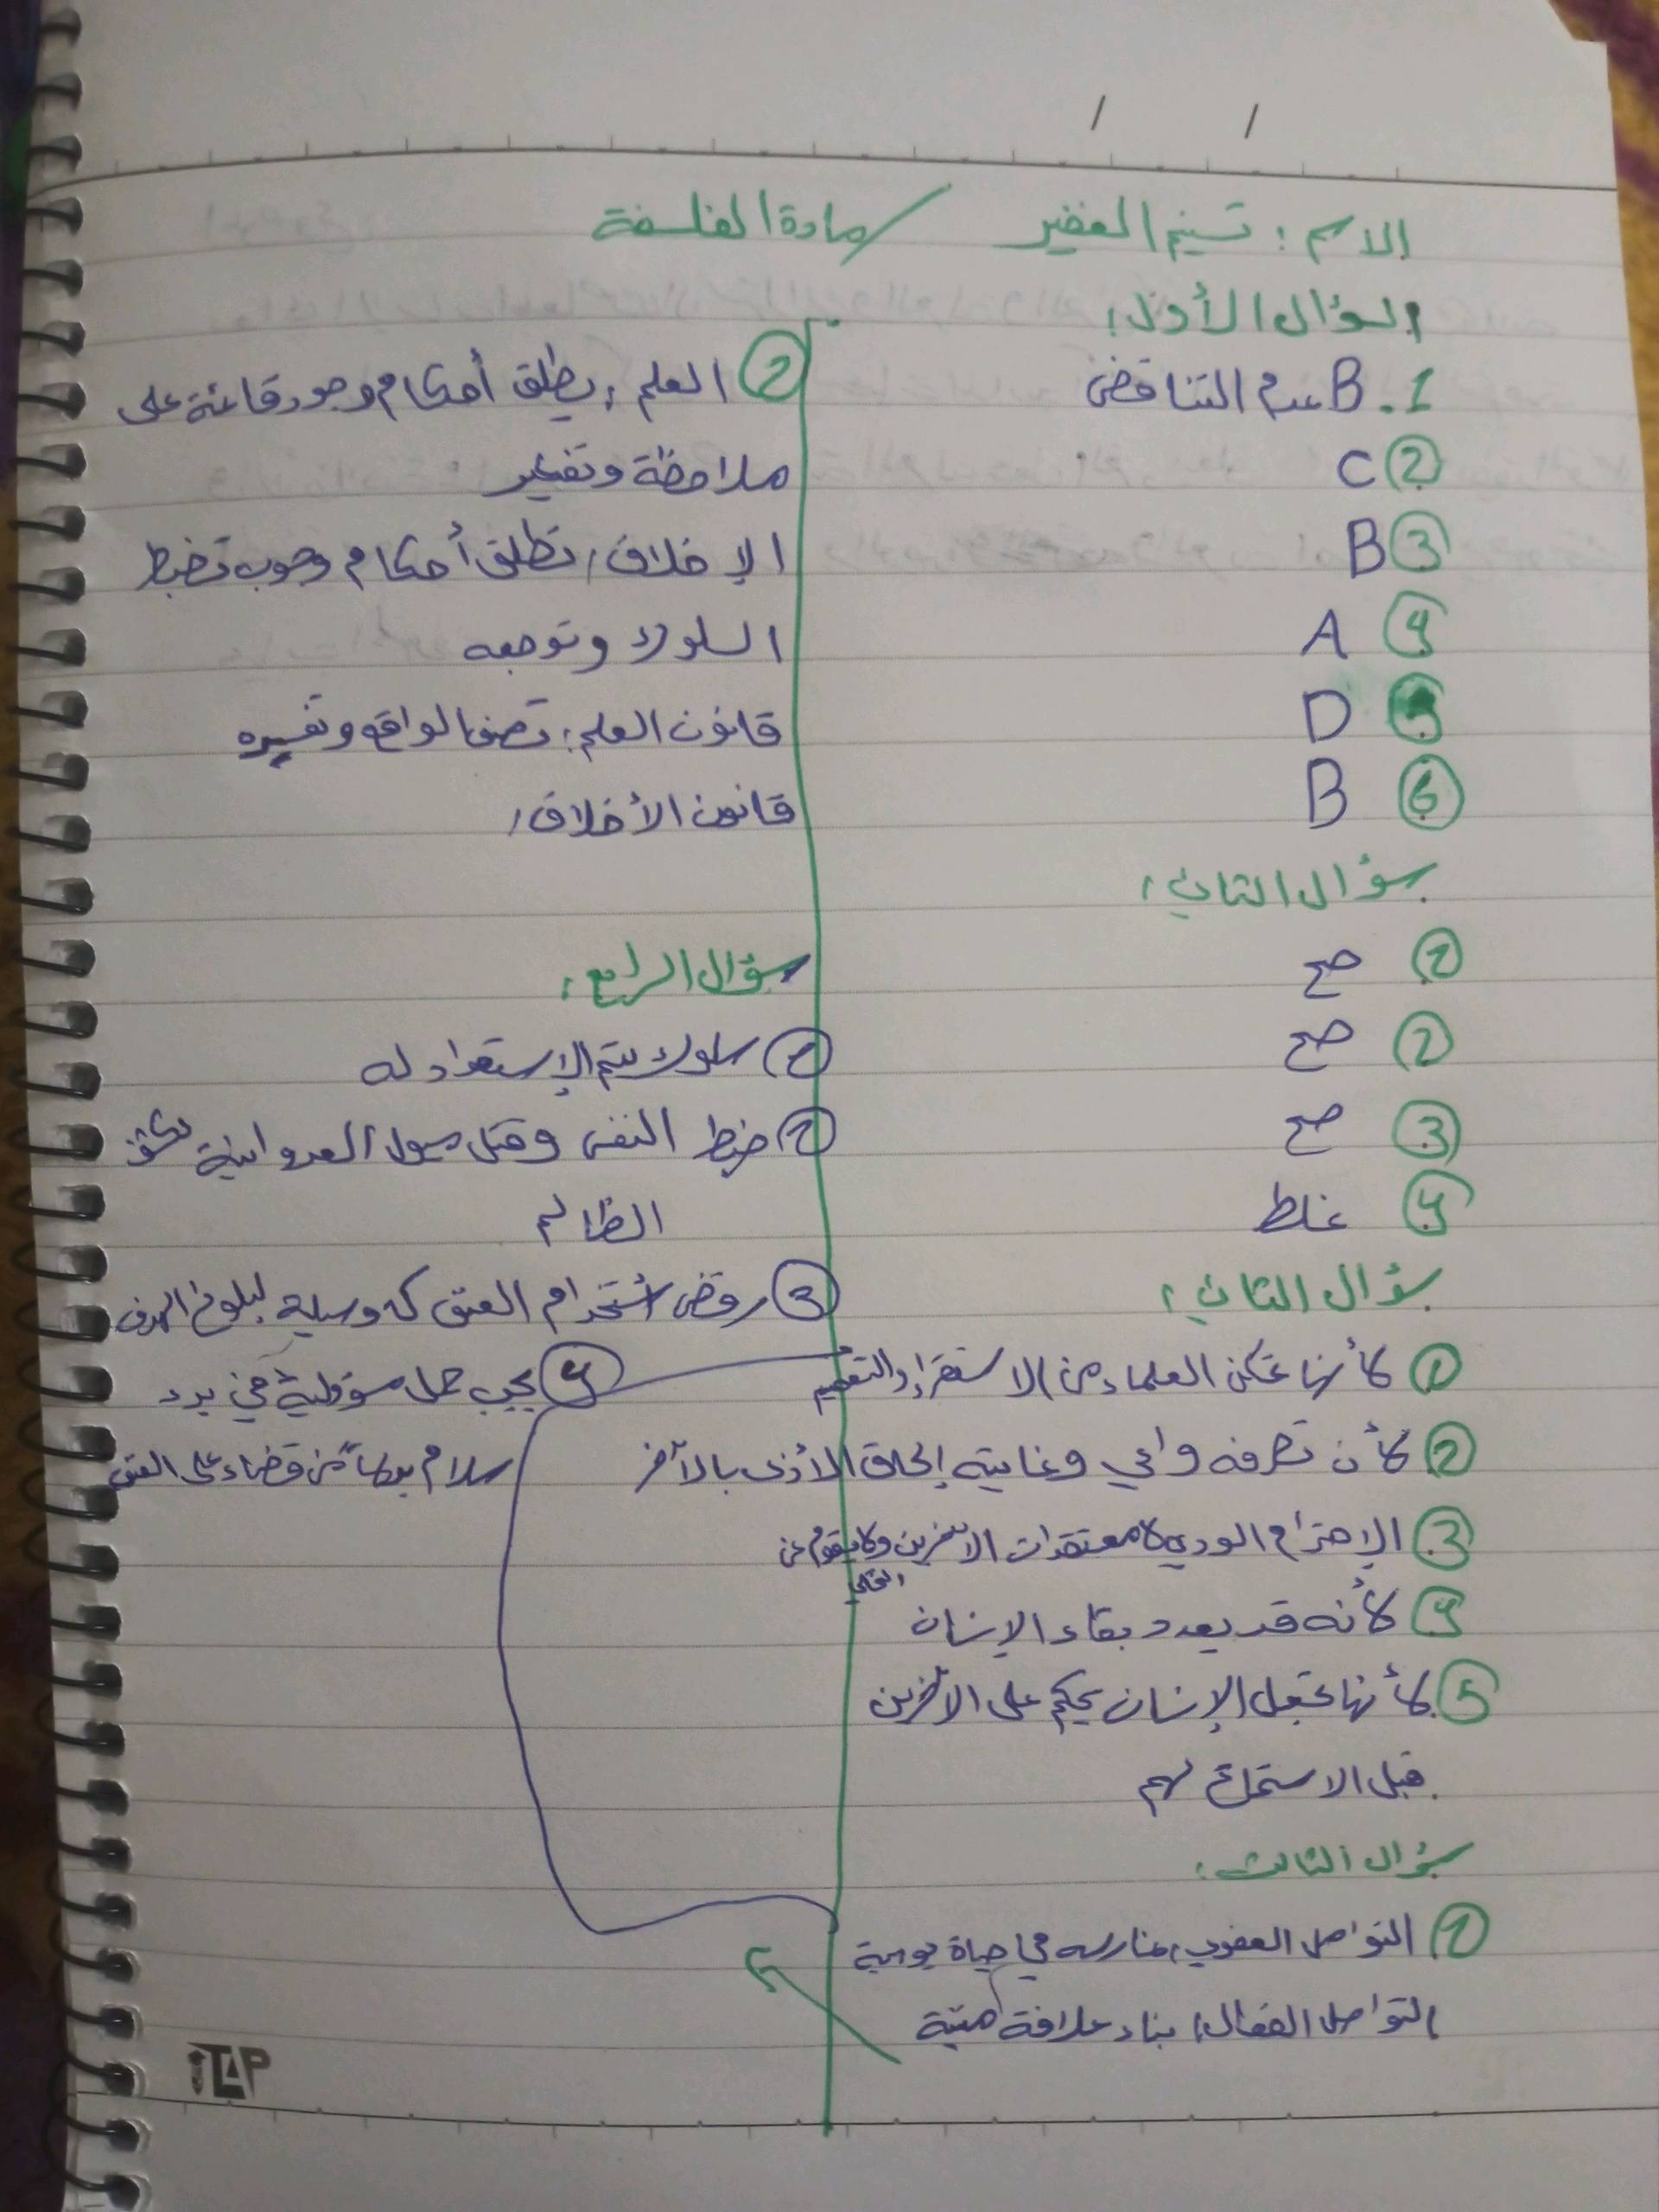 الاسم : تسنيم الغضير / مادة الفلسفة
السؤال الأول :
1. B عدم التناقض
2 C
3 B
4 A
5 D
6 B
سؤال الثاني :
1 صح
2 صح
3 صح
4 غلط
سؤال الثاني :
1 لأنها تمكن العلماء من الاستقراء والتعميم
2 لأن تصرفه واعي وغايته إلحاق الأذى بالآخر
3 الإحترام الودي لمعتقدات الآخرين
التخلي
4 لأنه قد يهدد بقاء الإنسان
5 لأنها تجعل الإنسان يحكم على الآخرين
قبل الاستماع لهم
سؤال الثالث :
1 التواصل العفوي : نمارسه في حياة يومية
التواصل الفعال : بناء علاقة متينة
2 العلم : يطلق أحكام وجود قائمة على
ملاحظة وتفكير
الإخلاق : تطلق أحكام وجوب تضبط
السلوك وتوجهه
قانون العلم : تصف الواقع وتفسيره
قانون الأخلاق :
سؤال الرابع :
1 سلوك يتم الإستعداد له
2 ضبط النفس وقتل ميول العدوانية
الظالم
3 رفض أستخدام العنف كوسيلة لبلوغ الهدف
4 يجب حمل مسؤولية في
سلام بدلاً من قضاء على العنف
iTAP